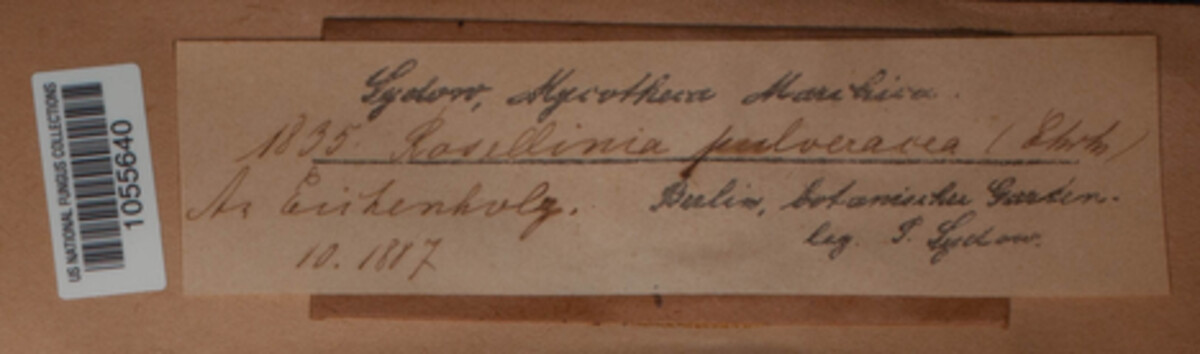 US NATIONAL FUNGUS COLLECTIONS
1055640
Sydow, Mycotheca Marchica.
1835. Rosellinia pulveracea (Ehrh)
An Eichenholz. Berlin, botanischer Garten.
10. 1887 leg. P. Sydow.